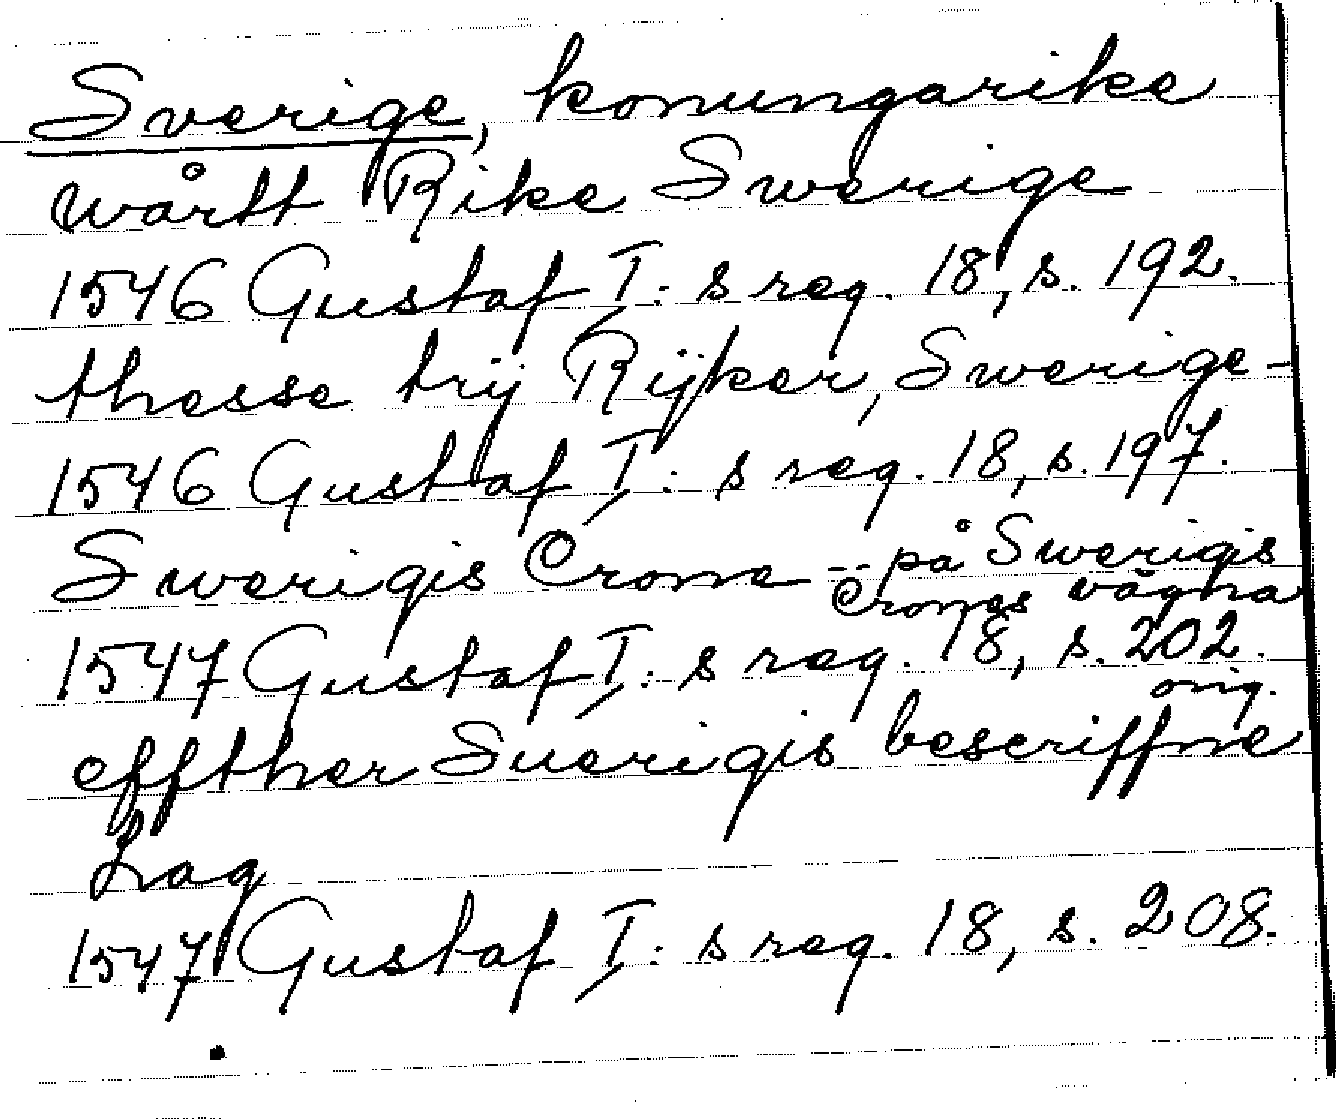 Sverige, konungarike
wårtt Rike Swerige
1546 Gustaf I: s reg. 18, s. 192.
thesse trij Rijker, Swerige -
1546 Gustaf I: s reg. 18, s. 197.
Swerigis Crone -- på Swerigis
Crones vägna
1547 Gustaf I: s reg. 18, s. 202.
orig.
effther Suerigis bescriffne
Lag
1547 Gustaf I: s reg. 18, s. 208.